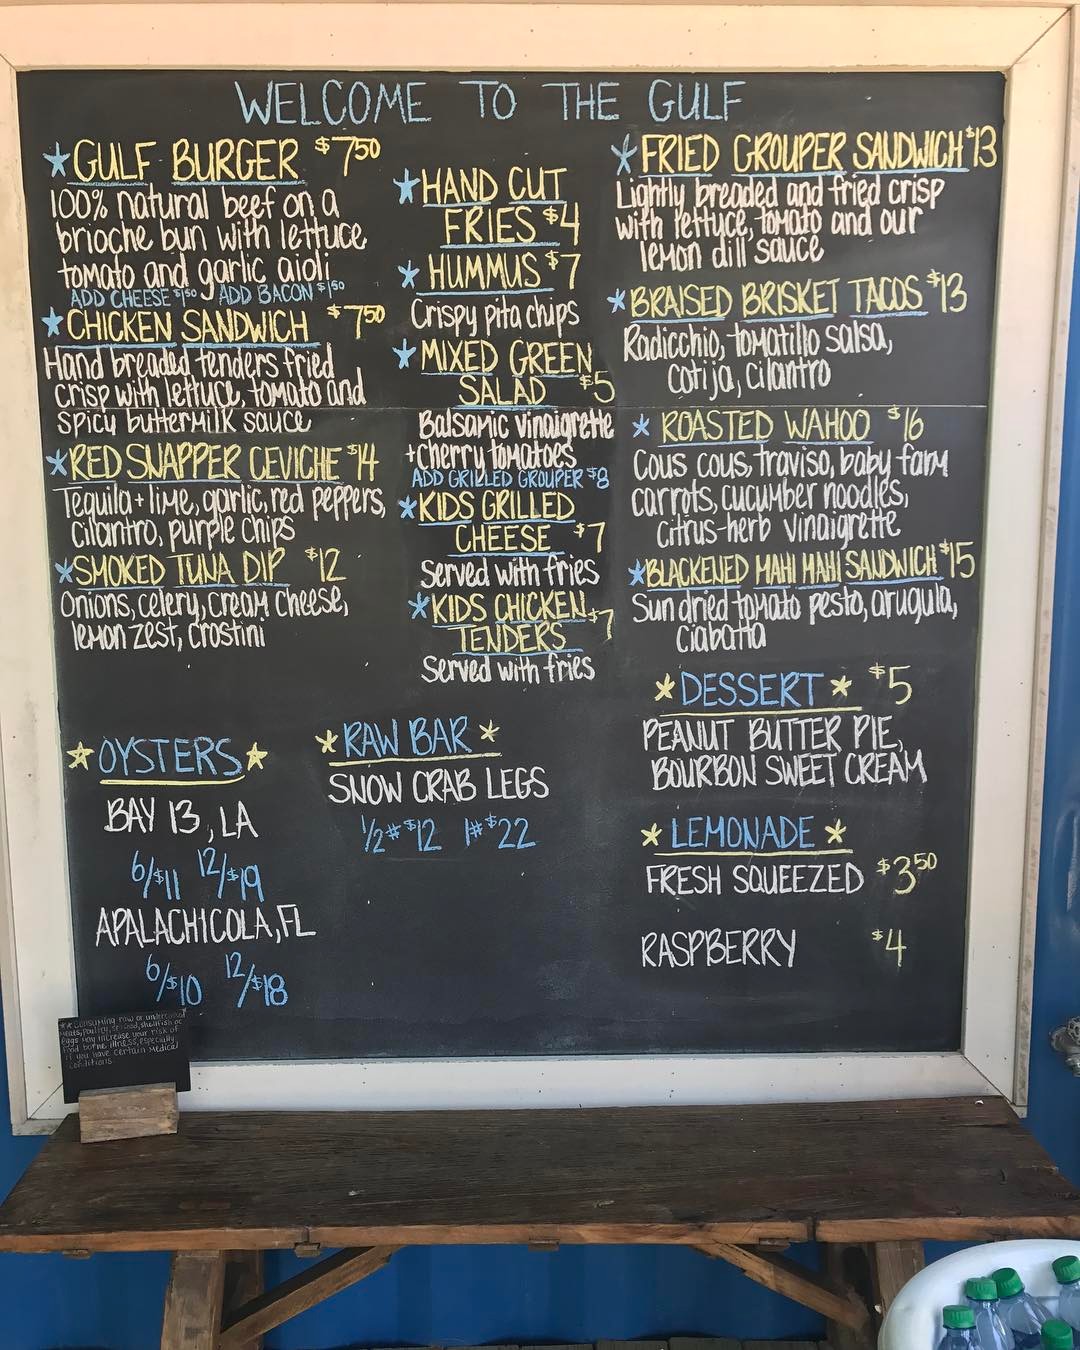 WELCOME TO THE GULF
GULF BURGER $7.50
100% natural beef on a
brioche bun with lettuce
tomato and garlic aioli
ADD CHEESE $1.50 ADD BACON $1.50
CHICKEN SANDWICH $7.50
Hand breaded tenders fried
crisp with lettuce, tomato and
spicy buttermilk sauce
RED SNAPPER CEVICHE $14
Tequila + lime, garlic, red peppers,
cilantro, purple chips
SMOKED TUNA DIP $12
Onions, celery, cream cheese,
lemon zest, crostini
HAND CUT
FRIES $4
HUMMUS $7
Crispy pita chips
MIXED GREEN
SALAD $5
Balsamic vinaigrette
+ cherry tomatoes
ADD GRILLED GROUPER $8
KIDS GRILLED
CHEESE $7
Served with fries
KIDS CHICKEN
TENDERS $7
Served with fries
FRIED GROUPER SANDWICH $13
Lightly breaded and fried crisp
with lettuce, tomato and our
lemon dill sauce
BRAISED BRISKET TACOS $13
Radicchio, tomatillo salsa,
cotija, cilantro
ROASTED WAHOO $16
Cous cous, traviso, baby farm
carrots, cucumber noodles,
citrus-herb vinaigrette
BLACKENED MAHI MAHI SANDWICH $15
Sun dried tomato pesto, arugula,
ciabatta
DESSERT $5
PEANUT BUTTER PIE,
BOURBON SWEET CREAM
LEMONADE
FRESH SQUEEZED $3.50
RASPBERRY $4
OYSTERS
BAY 13, LA
6/$11 12/$19
APALACHICOLA, FL
6/$10 12/$18
RAW BAR
SNOW CRAB LEGS
1/2# $12 1# $22
** Consuming raw or undercooked
meats, poultry, seafood, shellfish or
eggs may increase your risk of
food borne illness, especially
if you have certain medical
conditions